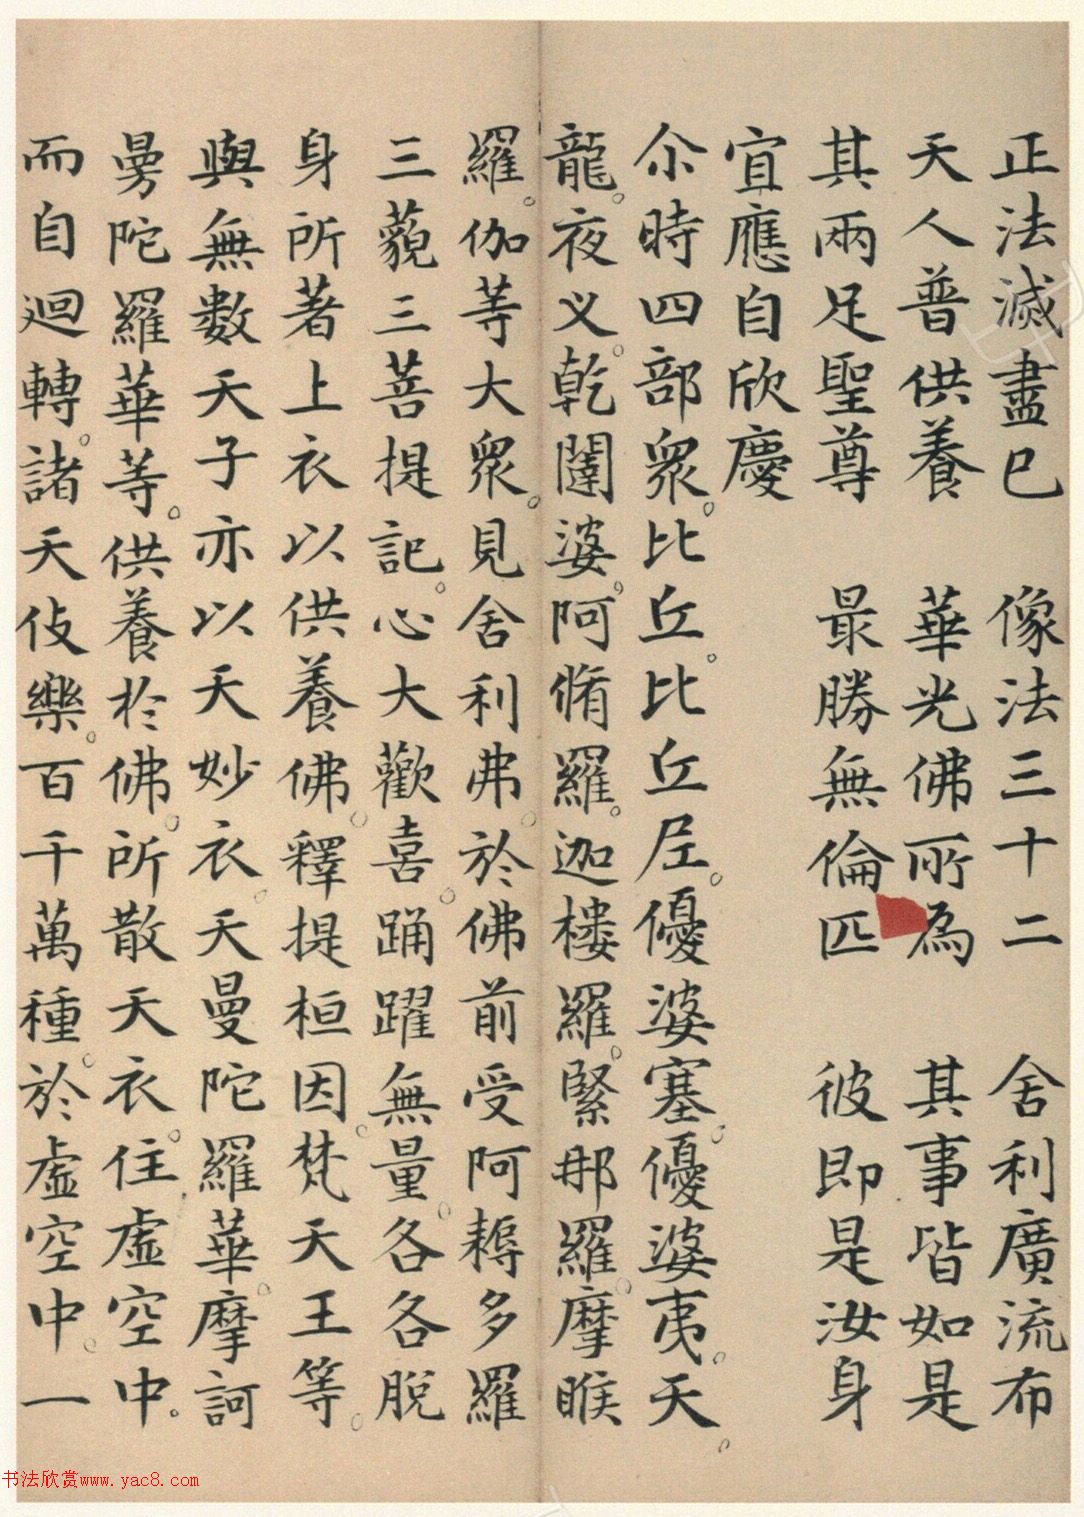 正法滅盡已　像法三十二　舍利廣流布
天人普供養　華光佛所為　其事皆如是
其兩足聖尊　最勝無倫匹　彼即是汝身
宜應自欣慶
尒時四部眾。比丘。比丘尼。優婆塞。優婆夷。天。
龍。夜叉。乾闥婆。阿脩羅。迦樓羅。緊那羅。摩睺
羅。伽等大眾。見舍利弗。於佛前受阿耨多羅
三藐三菩提記。心大歡喜。踊躍無量。各各脫
身所著上衣以供養佛。釋提桓因。梵天王等。
與無數天子亦以天妙衣。天曼陀羅華。摩訶
曼陀羅華等。供養於佛。所散天衣。住虛空中。
而自迴轉。諸天伎樂。百千萬種。於虛空中。一
书法欣赏www.yac8.com